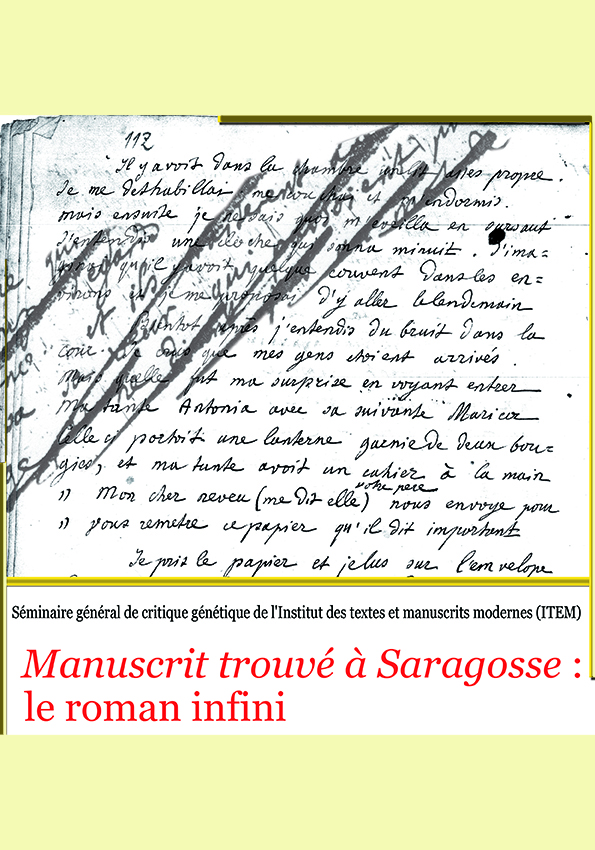 112
Il y avoit dans la chambre un lit assés propre.
Je me deshabillai, me couchai et m'endormis.
mais ensuite je ne sais quoi m'eveilla en sursaut
J'entendis une cloche qui sonna minuit. J'ima=
ginai qu'il y avoit quelque couvent dans les en=
virons et je me proposai d'y aller le lendemain
Bientot après j'entendis du bruit dans la
cour. Je crus que mes gens etoient arrivés.
Mais quelle fut ma surprise en voyant entrer
Ma tante Antonia avec sa suivante Marica
Celle ci portoit une lanterne garnie de deux bou=
gies, et ma tante avoit un cahier à la main
" Mon cher neveu (me dit elle) votre pere nous envoye pour
" vous remetre ce papier qu'il dit important
Je pris le papier et je lus sur l'envelope
Séminaire général de critique génétique de l'Institut des textes et manuscrits modernes (ITEM)
Manuscrit trouvé à Saragosse :
le roman infini